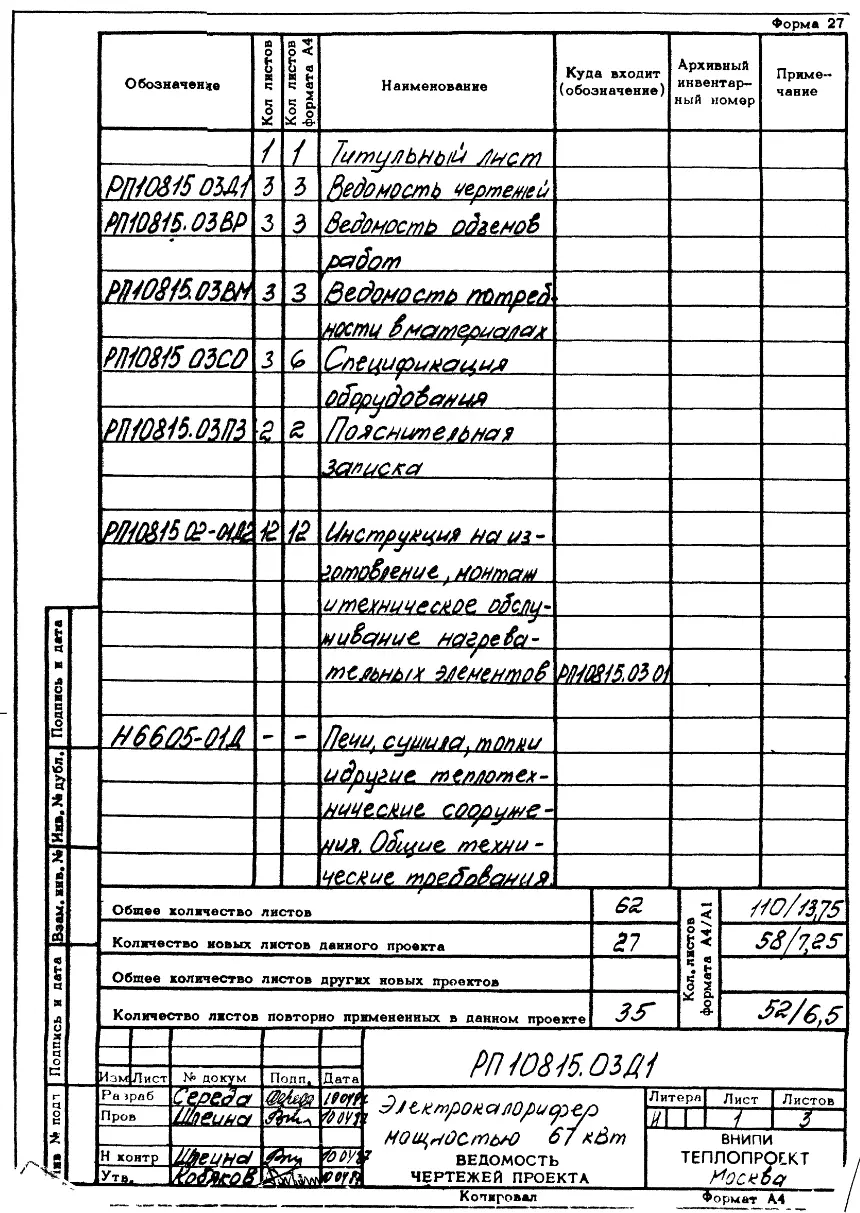 Форма 27
Обозначение
Кол листов
Кол листов формата А4
Наименование
Куда входит (обозначение)
Архивный инвентарный номер
Примечание
1 1 Титульный лист
РП10815 03Д1 3 3 Ведомость чертежей
РП10815.03ВР 3 3 Ведомость объемов
работ
РП10815.03ВМ 3 3 Ведомость потреб-
ности в материалах
РП10815 03СО 3 6 Спецификация
оборудования
РП10815.03ПЗ 2 2 Пояснительная
записка
РП10815 02-01Д2 12 12 Инструкция на из-
готовление, монтаж
и техническое обслу-
живание нагрева-
тельных элементов РП10815.03 01
Н6605-01Д - - Печи, сушила, топки
и другие теплотех-
нические сооруже-
ния. Общие техни-
ческие требования.
Общее количество листов 62
Количество новых листов данного проекта 27
Общее количество листов других новых проектов
Количество листов повторно примененных в данном проекте 35
Кол. листов формата А4/А1
110/13,75
58/7,25
52/6,5
Подпись и дата
Инв. № дубл.
Взам. инв. №
Подпись и дата
Инв № подл
Изм Лист № докум Подп. Дата
Разраб Середа
Пров Швеина
Н контр Швеина
Утв. Кобяков
РП10815.03Д1
Электрокалорифер
мощностью 67 кВт
ВЕДОМОСТЬ
ЧЕРТЕЖЕЙ ПРОЕКТА
Литера Лист Листов
И 1 3
ВНИПИ
ТЕПЛОПРОЕКТ
Москва
Копировал
Формат А4